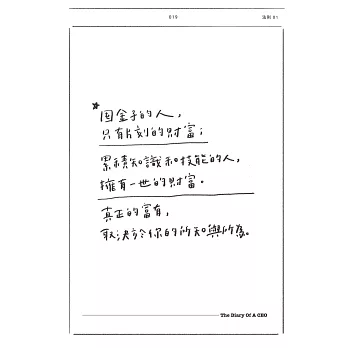 019
法則 01
囤金子的人,
只有片刻的財富;
累積知識和技能的人,
擁有一世的財富。
真正的富有,
取決於你的所知與所為。
The Diary Of A CEO